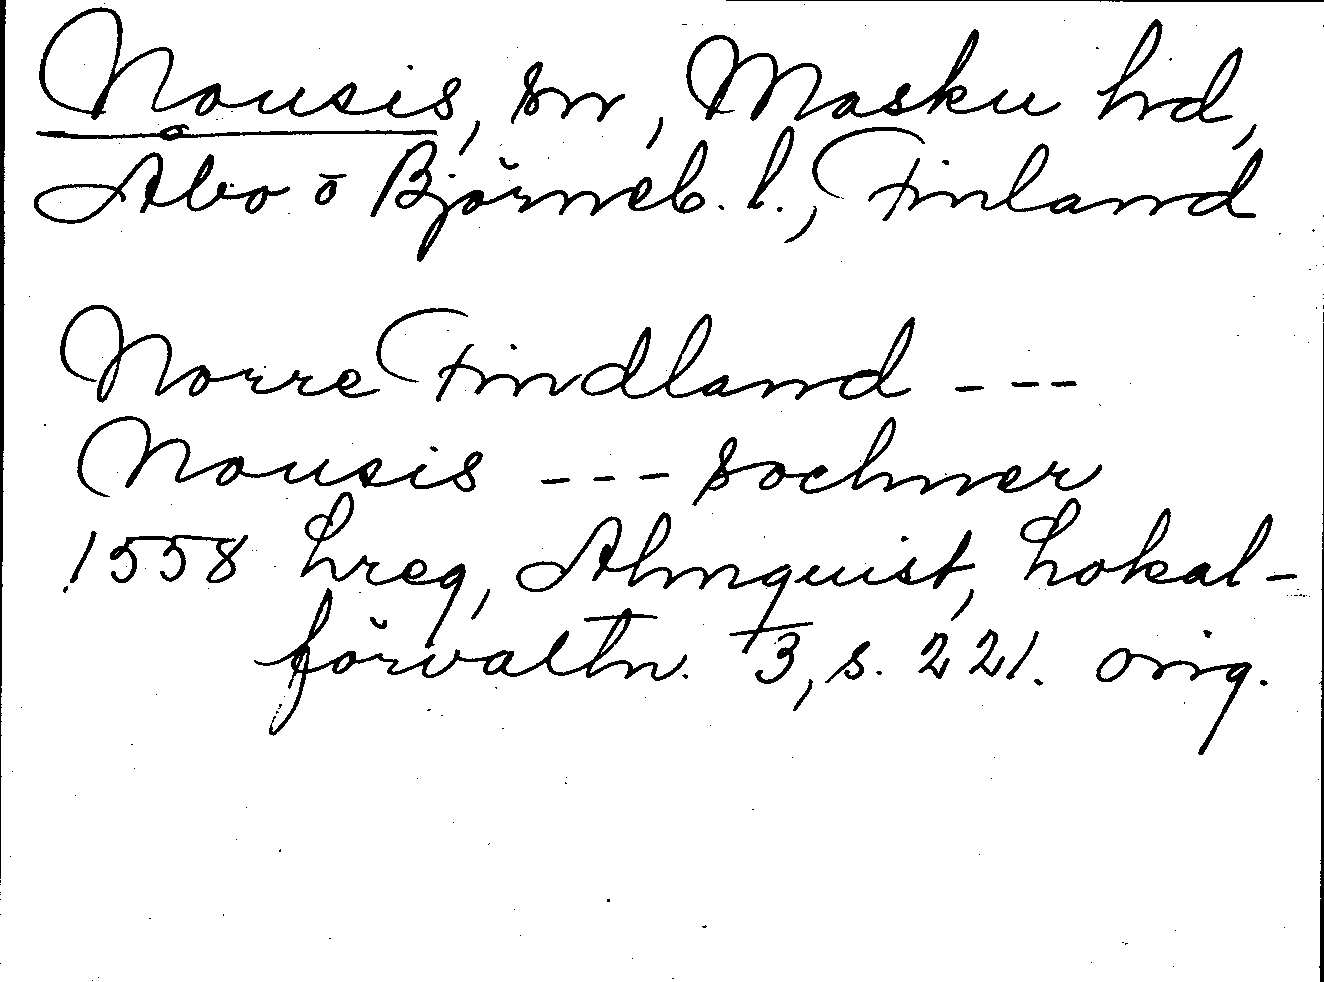 Nousis, sn, Masku hd,
Åbo o Björneb. l., Finland
Norre Findland ---
Nousis --- sochner
1558 hreg, Almquist, Lokal-
förvaltn. 3, s. 221. orig.